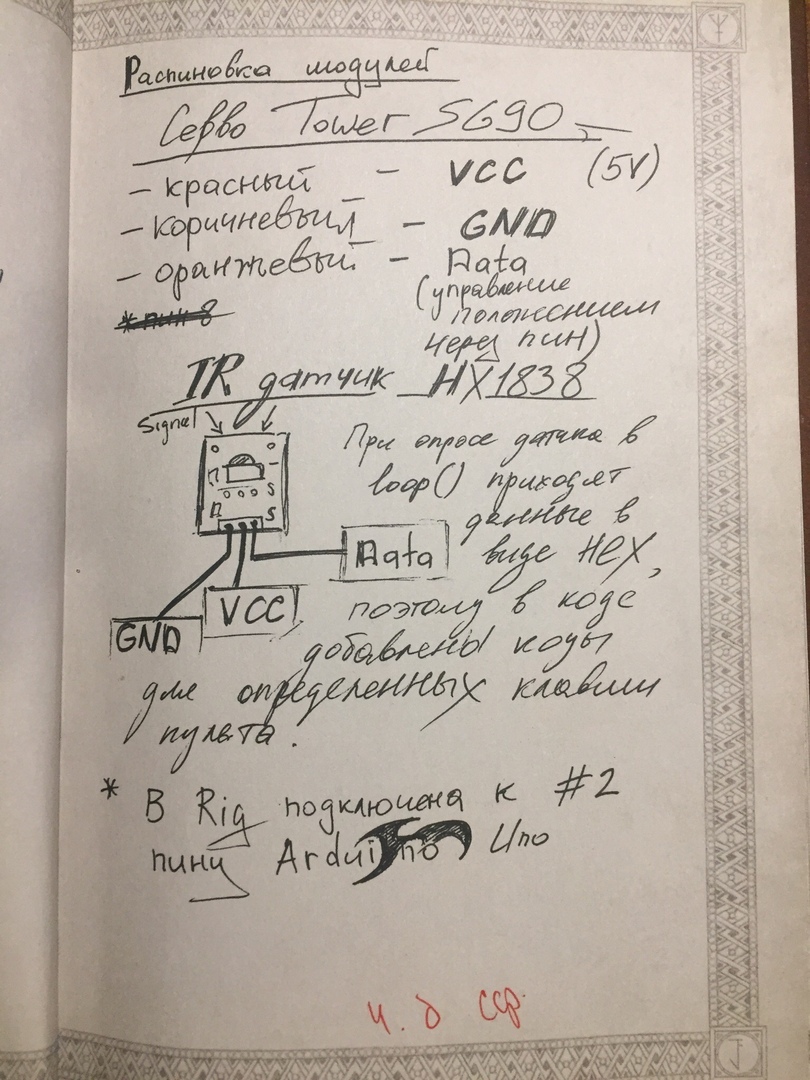 Распиновка модулей
Серво Tower SG90
- красный - VCC (5V)
- коричневый - GND
- оранжевый - Data
(управление
положением
через пин)
* пин 8
IR датчик HX1838
Signal
При опросе датчика в
loop() приходят
данные в
виде HEX,
поэтому в коде
добавлены коды
для определенных клавиш
пульта.
S
S
Data
VCC
GND
* В Rig подключена к #2
пину Arduino Uno